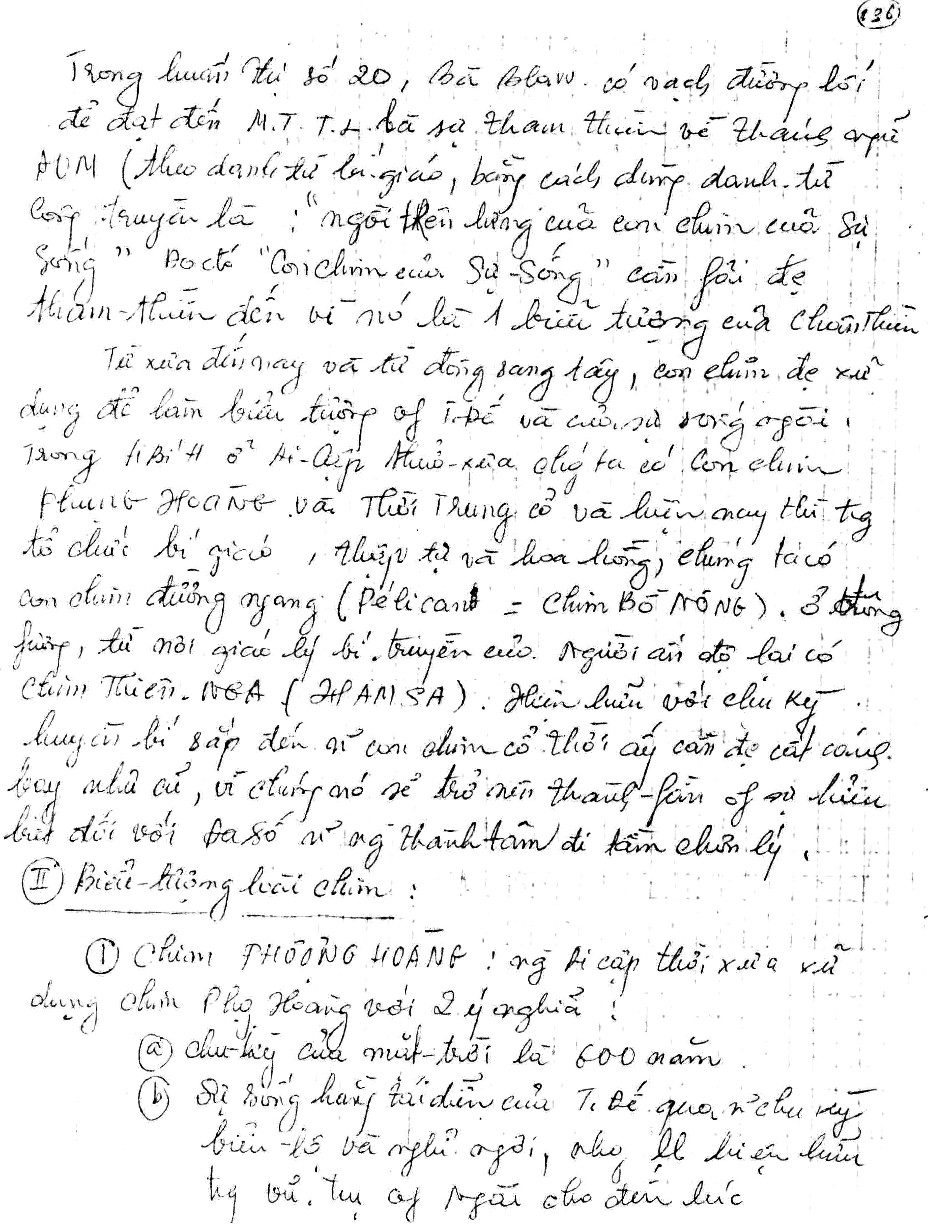 136
Trong huấn thị số 20, Bà Blaw. có vạch đường lối
để đạt đến M.T.T.L. là sự tham thiền về thánh ngữ
AUM (theo danh từ bí giáo, bằng cách dùng danh-từ
công truyền là : "ngồi trên lưng của con chim của Sự
Sống" Do đó "Con chim của Sự-Sống" cần fải đc
tham-thiền đến vì nó là 1 biểu tượng của Chơn Thiên
Từ xưa đến nay và từ đông sang tây, con chim đc xử
dụng để làm biểu tượng of T.Đế và của sự sống ngài.
Trong HBí H ở Ai-Cập thuở-xưa chg ta có Con chim
PHỤNG HOÀNG và Thời Trung cổ và hiện nay thì trg
tổ chức bí giáo, thập tự và hoa hồng, chúng ta có
con chim đường ngang (Pélican = Chim BỒ NÔNG). Ở đông
fương, từ nơi giáo lý bí-truyền của Người ấn độ lại có
Chim Thiên-NGA (HAMSA). Hiện hữu với chu kỳ
huyền bí sắp đến n~ con chim cổ thời ấy cần đc cất cánh
bay như cũ, vì chúng nó sẽ trở nên thành-fần of sự hiểu
biết đối với Đa số n~ ng thành tâm đi tầm chơn lý.
II Biểu-tượng loài chim :
1 Chim PHƯỢNG HOÀNG : ng Ai cập thời xưa xử
dụng chim Phg Hoàng với 2 ý nghĩa :
a chu-kỳ của mặt-trời là 600 năm
b Sự sống hằng tái diễn của T.Đế qua n~ chu kỳ
biểu-lộ và nghỉ ngơi, nhg hiện hữu
trg vũ.trụ of Ngài cho đến lúc